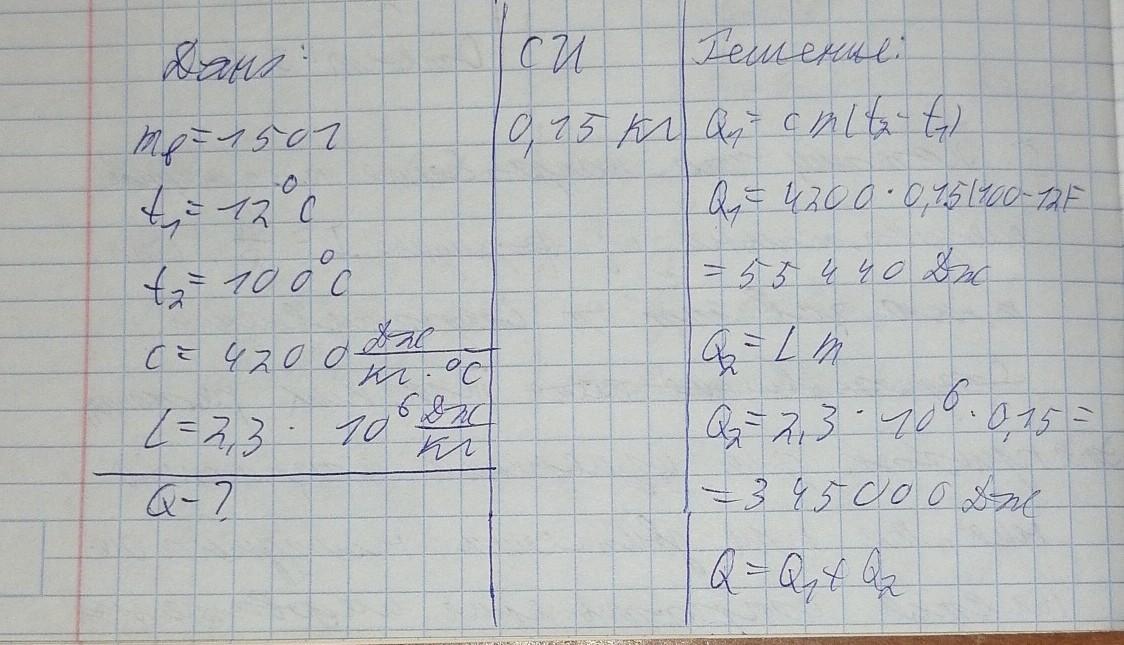 Дано:
m₀=150г
t₁=12°C
t₂=100°C
c=4200 Дж/кг·°C
L=2,3·10⁶ Дж/кг
Q-?
СИ
0,15 кг
Решение:
Q₁=cm(t₂-t₁)
Q₁=4200·0,15(100-12)=
=55440 Дж
Q₂=Lm
Q₂=2,3·10⁶·0,15=
=345000 Дж
Q=Q₁+Q₂